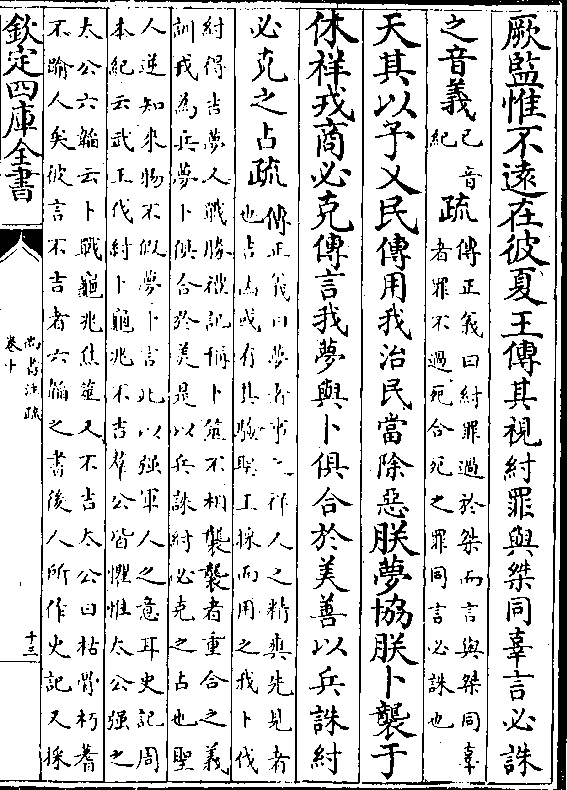 厥監惟不遠在彼夏王傳其視紂罪與桀同辜言必誅
之音義
己音
紀
疏
傳正義曰紂罪過於桀而言與桀同辜
者罪不過死合死之罪同言必誅也
天其以予乂民傳用我治民當除惡朕夢協朕卜襲于
休祥戎商必克傳言我夢與卜俱合於美善以兵誅紂
必克之占疏
傳正義曰夢者事之祥人之精爽先見者
也吉凶或有其驗聖王採而用之我卜伐
紂得吉夢人戰勝禮記稱卜筮不相襲襲者重合之義
訓戎為兵夢卜俱合於美是以兵誅紂必克之占也聖
人逆知來物不假夢卜言此以强軍人之意耳史記周
本紀云武王伐紂卜龜兆不吉羣公皆懼惟太公强之
太公六韜云卜戰龜兆焦筮又不吉太公曰枯骨朽蓍
不踰人矣彼言不吉者六韜之書後人所作史記又採
欽定四庫全書
尚書注疏
卷十
十三